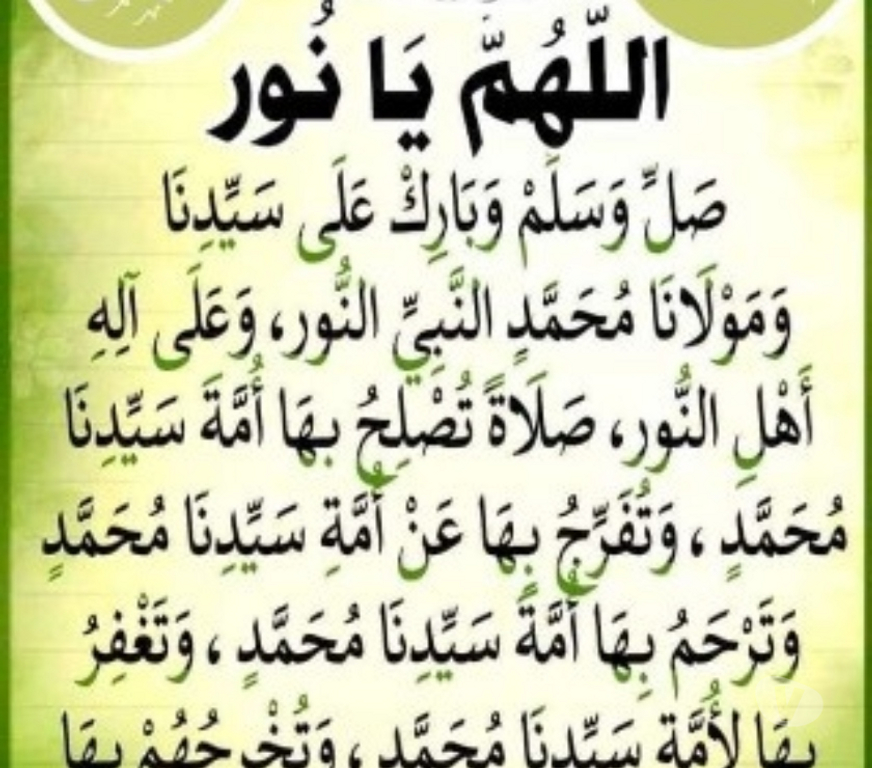 اللَّهُمَّ يَا نُور
صَلِّ وَسَلِّمْ وَبَارِكْ عَلَى سَيِّدِنَا
وَمَوْلَانَا مُحَمَّدٍ النَّبِيِّ النُّور، وَعَلَى آلِهِ
أَهْلِ النُّور، صَلَاةً تُصْلِحُ بِهَا أُمَّةَ سَيِّدِنَا
مُحَمَّدٍ، وَتُفَرِّجُ بِهَا عَنْ أُمَّةِ سَيِّدِنَا مُحَمَّدٍ
وَتَرْحَمُ بِهَا أُمَّةَ سَيِّدِنَا مُحَمَّدٍ، وَتَغْفِرُ
بِهَا لِأُمَّةِ سَيِّدِنَا مُحَمَّدٍ، وَتُخْرِجُهُمْ بِهَا